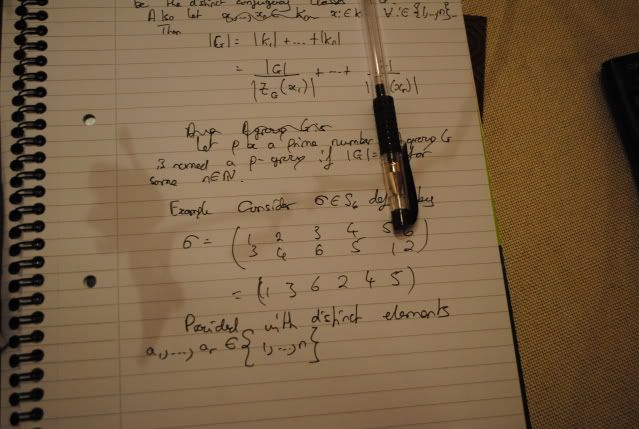 be the distinct conjugacy classes
Also let x₁,...,xₙ ∈ Kₙ, xᵢ ∈ K ∀i ∈ {1,...,n}.
Then
|G| = |K₁| + ... + |Kₙ|
= |G| / |Z_G(x₁)| + ... + |(xₙ)|
Let p be a prime number group G
is named a p-group if |G| = for
some n ∈ ℕ.
Example Consider σ ∈ S₆ by
σ = ( 1 2 3 4 5 6
3 4 6 5 1 2 )
= (1 3 6 2 4 5)
with distinct elements
a₁,..., aᵣ ∈ {1,...,n}